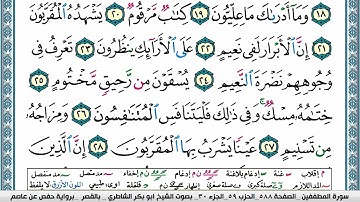 ١٨ وَمَآ أَدْرَىٰكَ مَا عِلِّيُّونَ ١٩ كِتَٰبٌ مَّرْقُومٌ ٢٠ يَشْهَدُهُ ٱلْمُقَرَّبُونَ
٢١ إِنَّ ٱلْأَبْرَارَ لَفِى نَعِيمٍ ٢٢ عَلَى ٱلْأَرَآئِكِ يَنظُرُونَ ٢٣ تَعْرِفُ فِى
وُجُوهِهِمْ نَضْرَةَ ٱلنَّعِيمِ ٢٤ يُسْقَوْنَ مِن رَّحِيقٍ مَّخْتُومٍ ٢٥
خِتَٰمُهُۥ مِسْكٌ ۚ وَفِى ذَٰلِكَ فَلْيَتَنَافَسِ ٱلْمُتَنَٰفِسُونَ ٢٦ وَمِزَاجُهُۥ
مِن تَسْنِيمٍ ٢٧ عَيْنًا يَشْرَبُ بِهَا ٱلْمُقَرَّبُونَ ٢٨ إِنَّ ٱلَّذِينَ
سورة المطففين الصفحة ٥٨٨ الحزب ٥٩ الجزء ٣٠ بصوت الشيخ ابو بكر الشاطري بالقصر رواية حفص عن عاصم